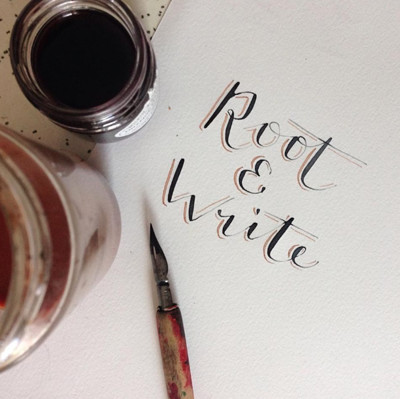 Root
&
Write